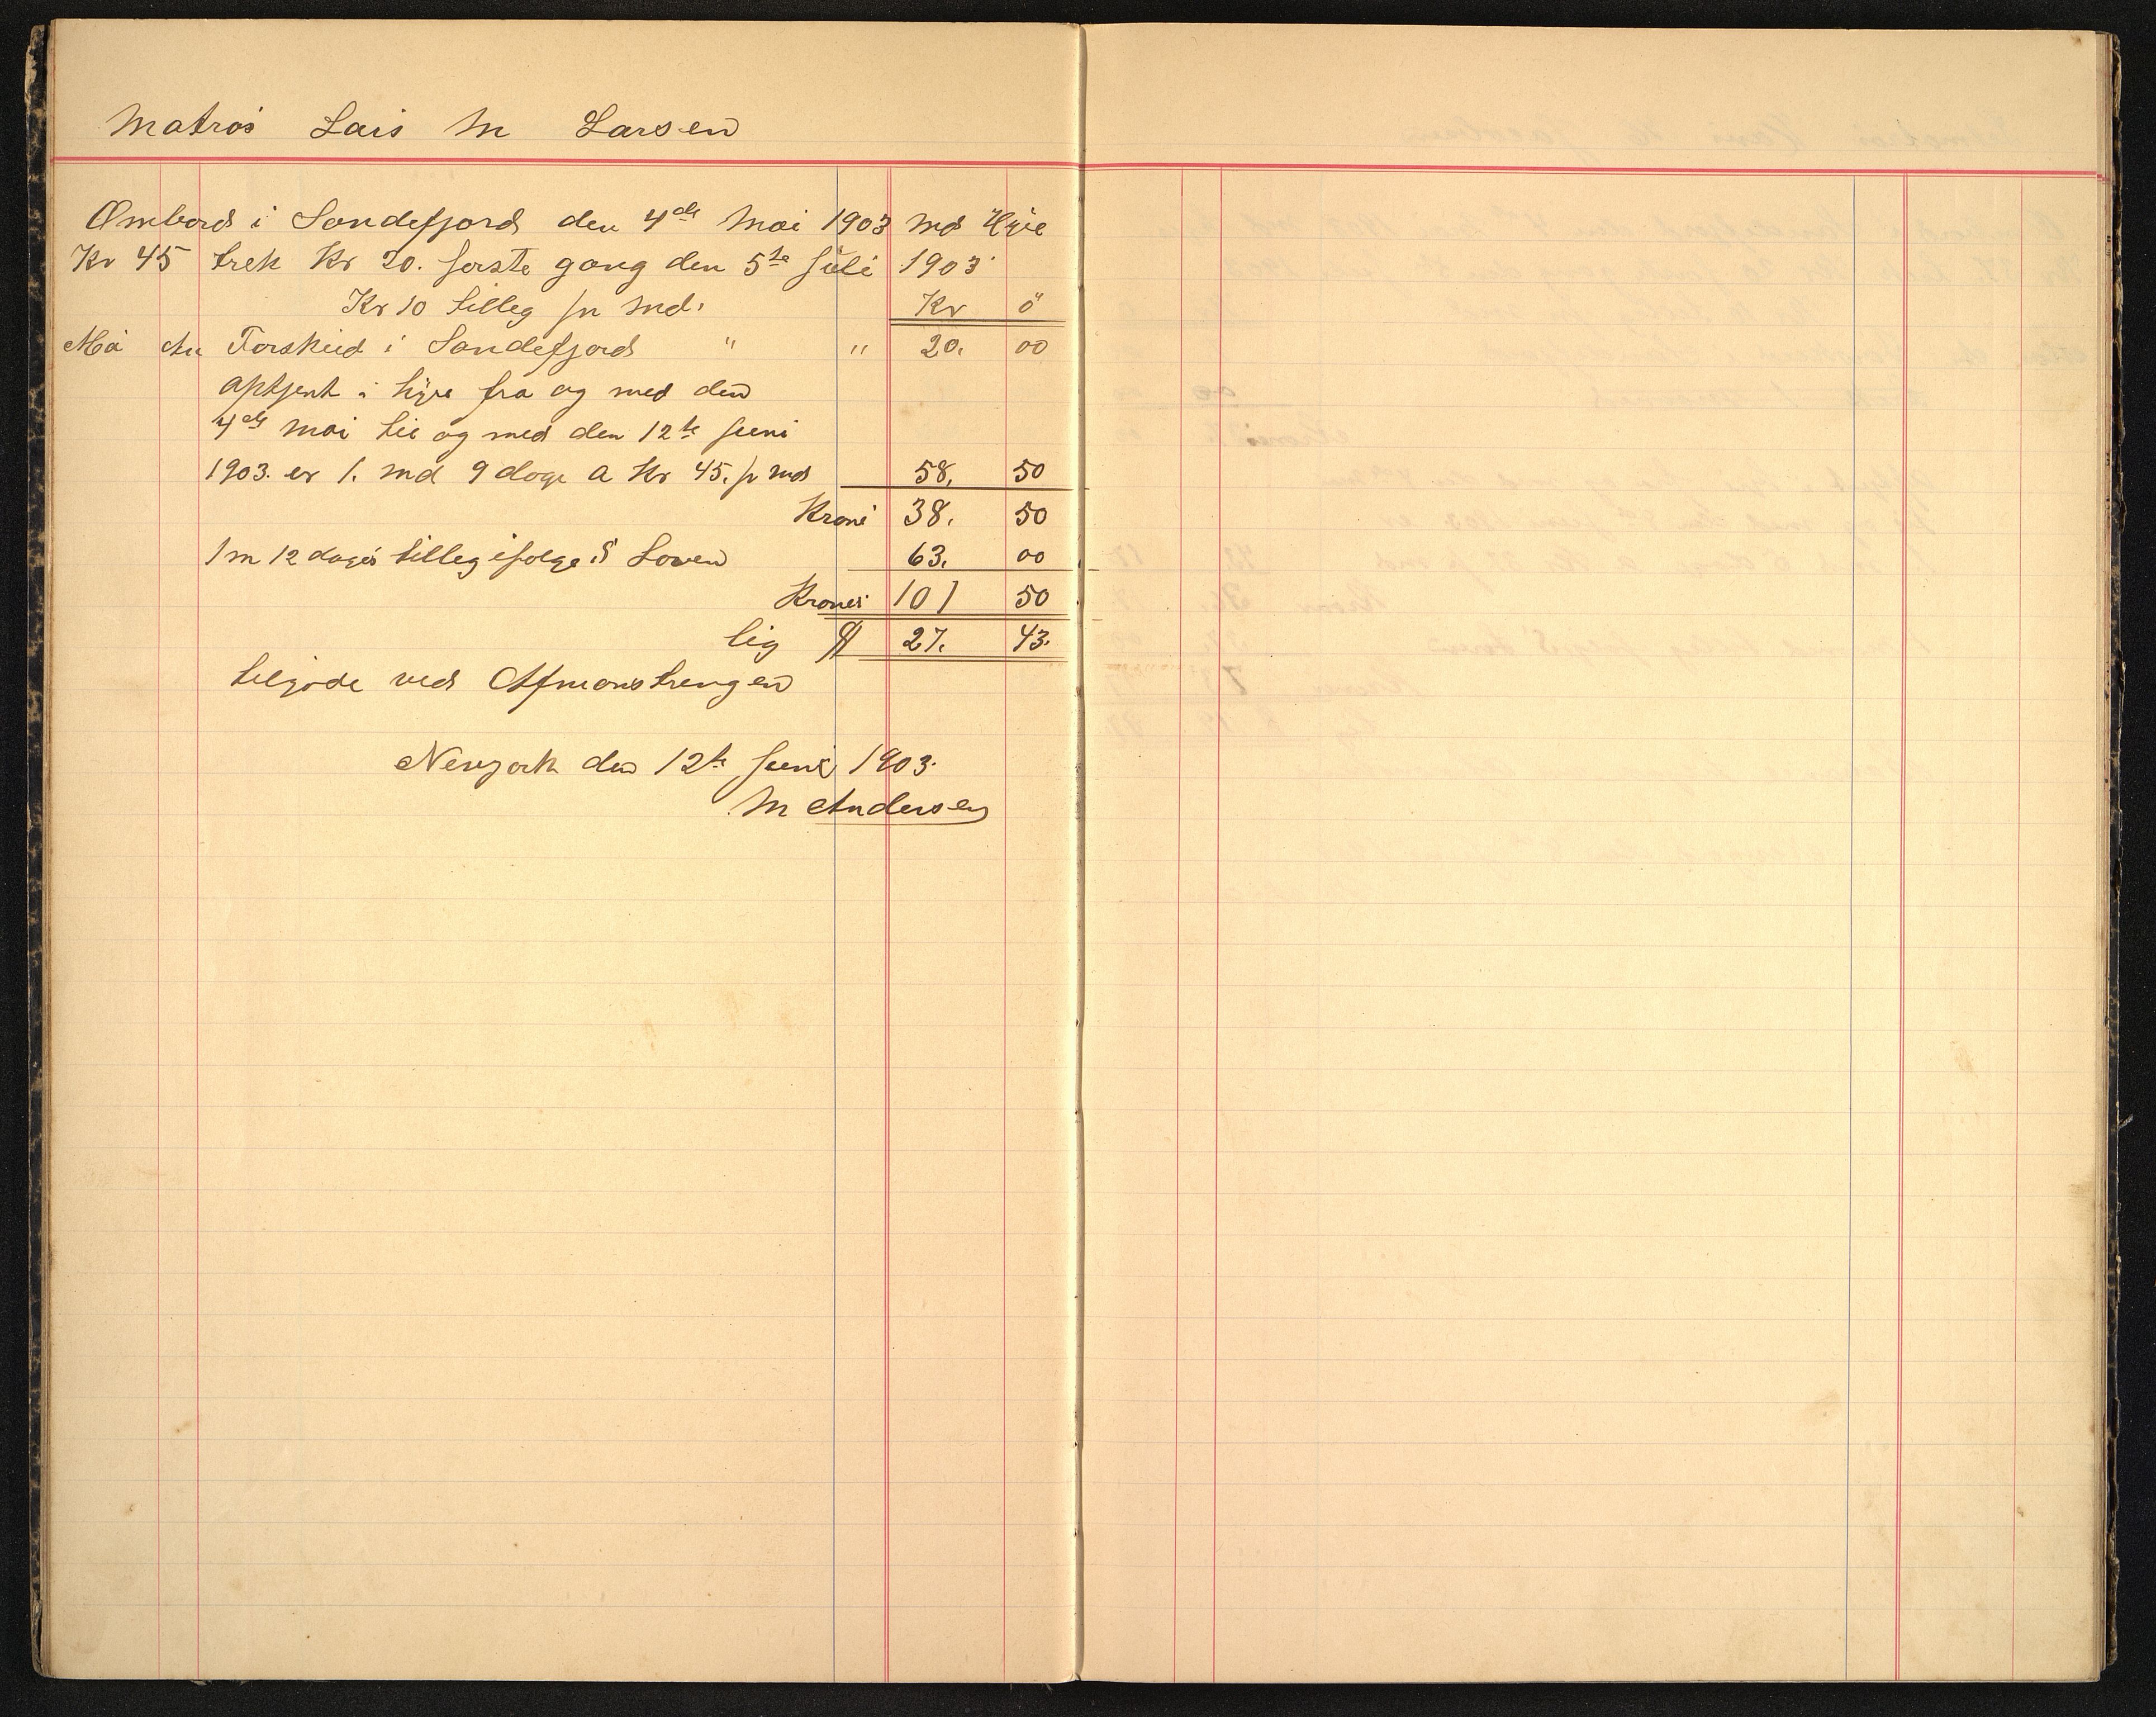 Matros Lars M Larsen
Ombord i Sandefjord den 4de Mai 1903 md Hyre
Kr 45 trek Kr 20. førstе gang den 5te Juli 1903
Kr 10 tilleg pr md.
Kr ö
Mai An Forskud i Sandefjord " " 20. 00
optjent i hyre fra og med den
4de Mai til og med den 12te Juni
1903. er 1. md 9 dage a Kr 45. pr md 58. 50
Kroner 38. 50
1 m 12 dages tilleg ifølge § Loven 63. 00
Kroner 101 50
lig $ 27. 43.
tilgode ved Afmønstringen
Newyork den 12te Juni 1903.
M Andersen